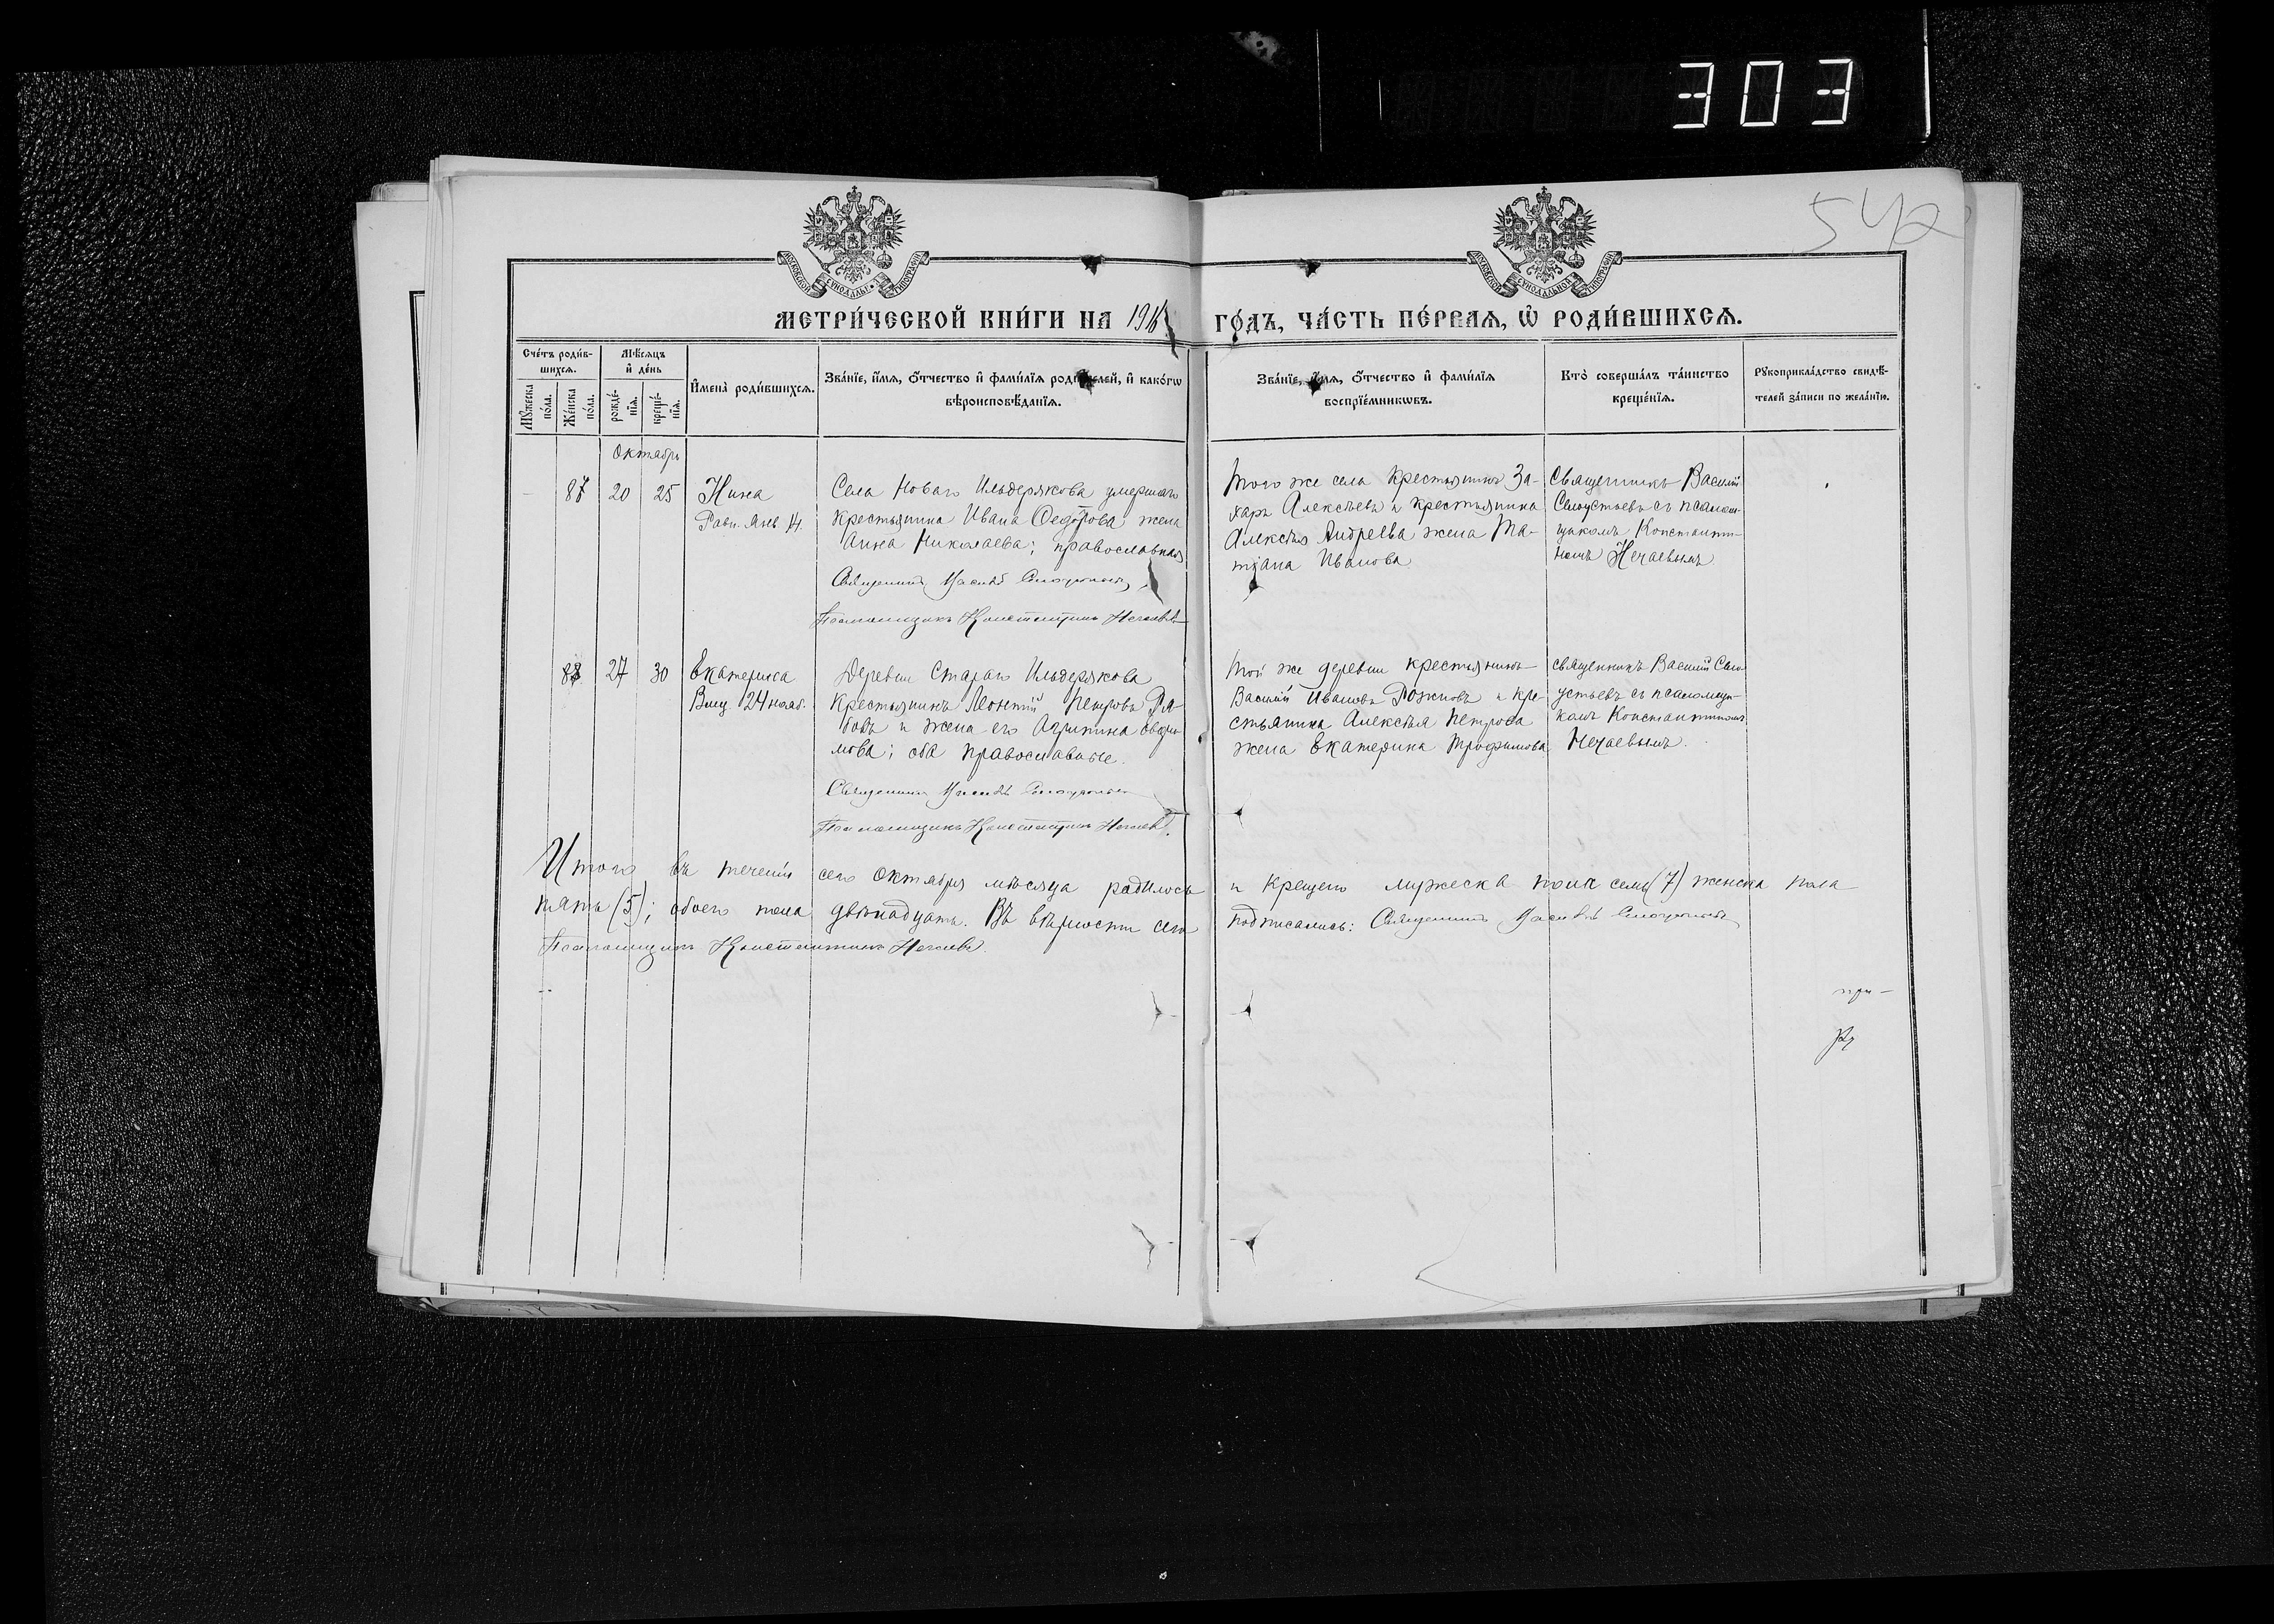 303
542
МЕТРИ́ЧЕСКОЙ КНИ́ГИ НА 1916 ГО́ДЪ, ЧА́СТЬ ПЕ́РВАЯ, Ѡ҆ РОДИ́ВШИХСЯ.
Сче́тъ роди́в-
шихся.
Мꙋ́жеска по́ла.
Же́нска по́ла.
Мѣ́сяцъ
и҆ де́нь
рожде́-
нїя.
креще́-
нїя.
И҆мена̀ роди́вшихся.
Зва́нїе, и҆́мя, ѻ҆́тчество и҆ фами́лїя роди́телей, и҆ како́гѡ
вѣроисповѣ́данїя.
Зва́нїе, и҆́мя, ѻ҆́тчество и҆ фами́лїя
воспрїе́мникѡвъ.
Кто̀ соверша́лъ та́инство
креще́нїя.
Рꙋкоприкла́дство свидѣ́-
телей за́писи по жела́нїю.
Октябрь
87 20 25 Нина
Равн. Янв. 14.
Села Новаго Ильдерякова умершаго
крестьянина Ивана Федотова жена
Анна Николаева; православная
Священникъ Василій
Псаломщикъ Константинъ Нечаевъ
Того же села крестьянинъ За-
харъ Алексѣевъ и крестьянина
Алексѣя Андреева жена Та-
тіана Иванова
Священникъ Василій
съ псалом-
щикомъ Константи-
номъ Нечаевымъ
88 27 30 Екатерина
Вмц. 24 нояб.
Деревни Стараго Ильдерякова
крестьянинъ Леонтій Петровъ Ря-
бовъ и жена его Агрипина Евфи-
мова; оба православные.
Священникъ Василій
Псаломщикъ Константинъ Нечаевъ.
Той же деревни крестьянинъ
Василій Ивановъ Рожновъ и кре-
стьянина Алексѣя Петрова
жена Екатерина Трофимова
Священникъ Василій
съ псаломщи-
комъ Константиномъ
Нечаевымъ.
Итого въ теченіи сего октября мѣсяца родилось и крещено мужеска пола семь (7) женска пола
пять (5); обоего пола двѣнадцать. Въ вѣрности сего подписались: Священникъ Василій
Псаломщикъ Константинъ Нечаевъ.